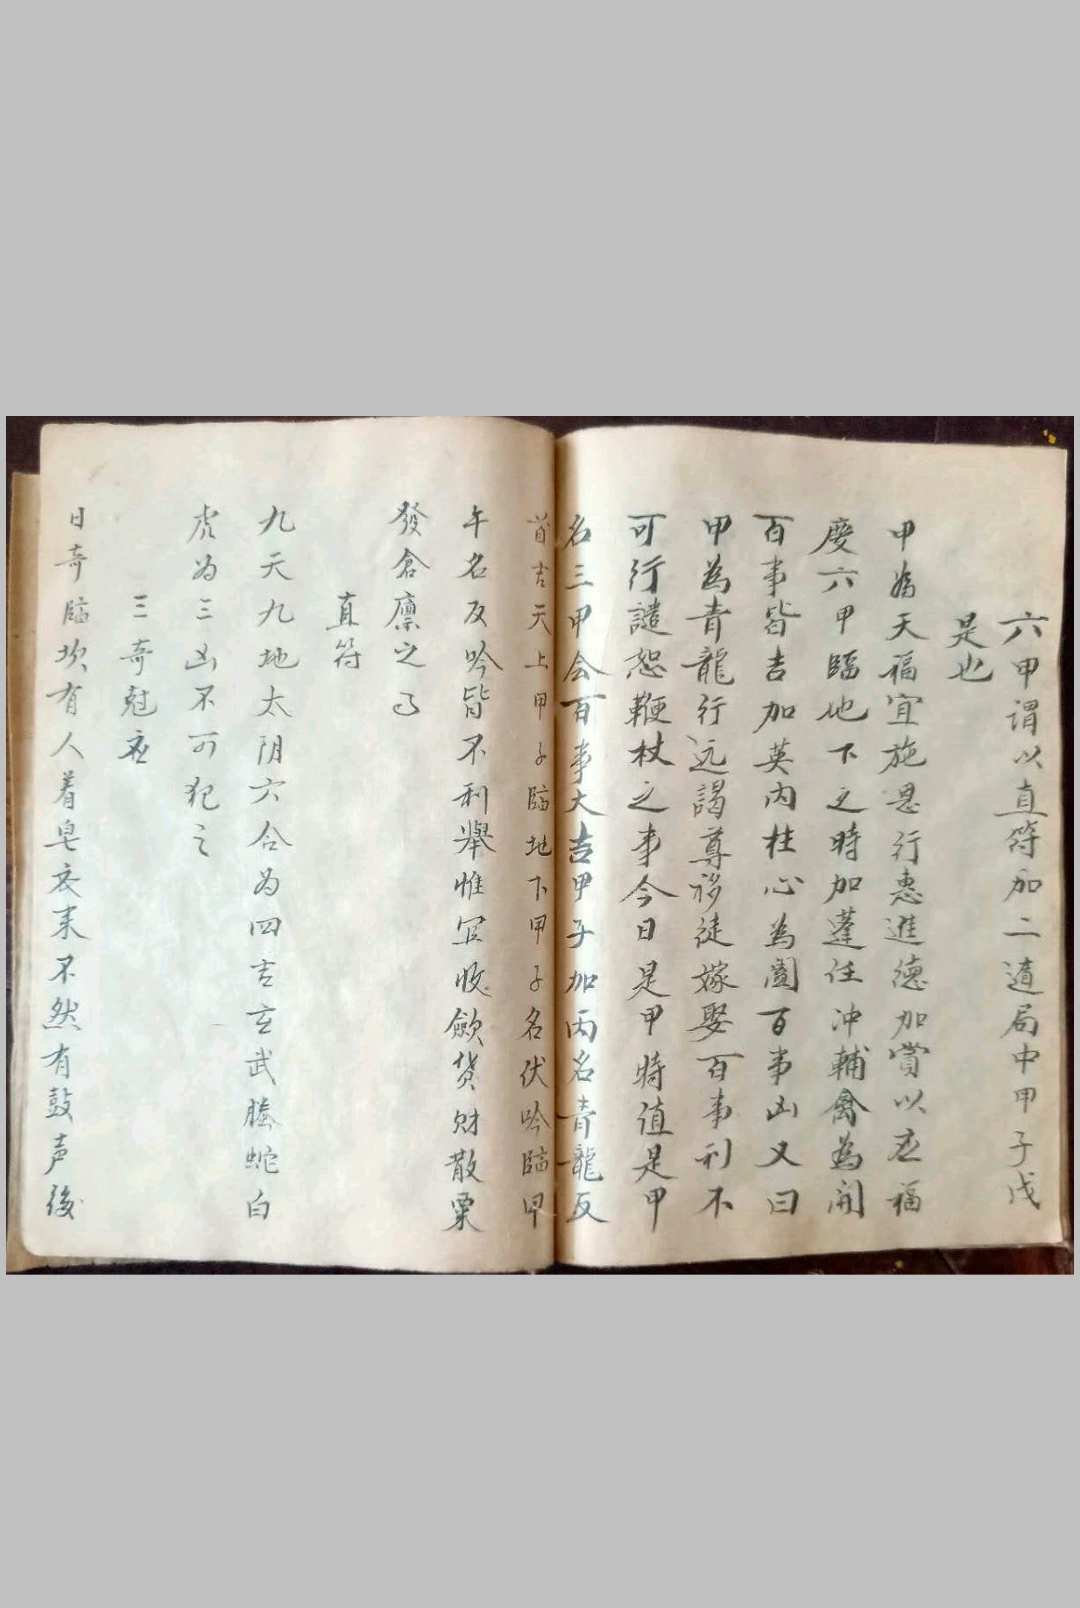 六甲谓以直符加二遁局中甲子戊
是也
甲為天福宜施恩行惠進德加賞以应福
慶六甲臨地下之時加蓬任冲輔禽為開
百事皆吉加英芮柱心為闔百事凶又曰
甲為青龍行远謁尊移徒嫁娶百事利不
可行譴怒鞭杖之事今日是甲時值是甲
名三甲会百事大吉甲子加丙名青龍反
首吉天上甲子臨地下甲子名伏吟臨甲
午名反吟皆不利舉惟宜收歛货财散粟
發倉廪之
直符
九天九地太阴六合为四吉玄武螣蛇白
虎为三凶不可犯之
三奇尅应
日奇臨坎有人着皂衣来不然有鼓声後